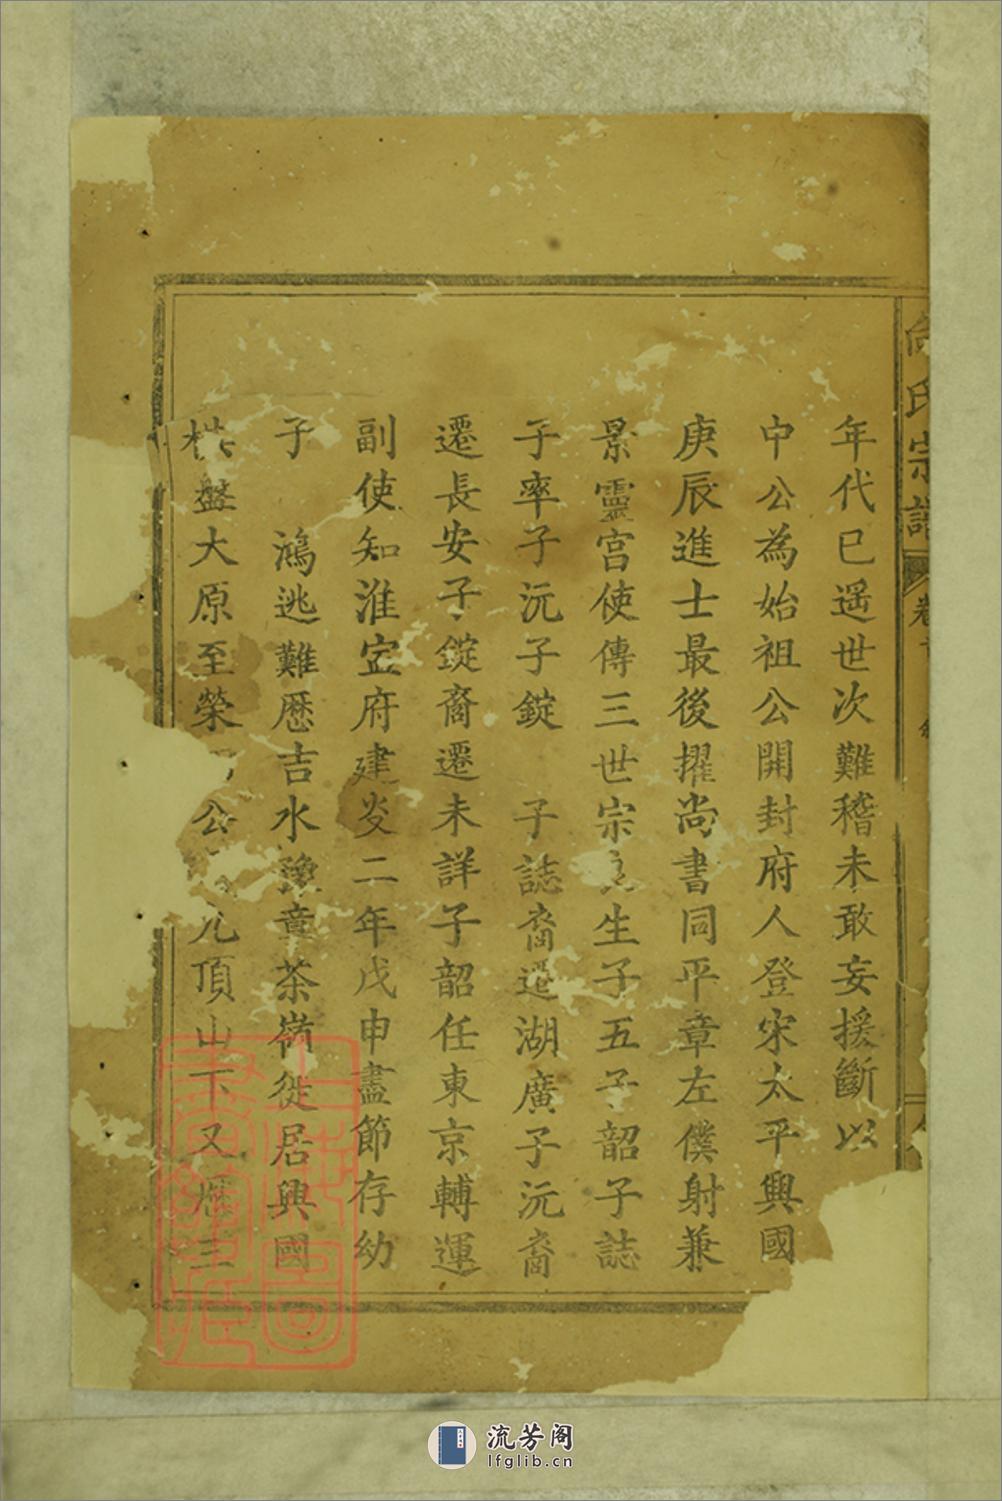 氏宗譜
卷
年代已遥世次難稽未敢妄援斷以
中公為始祖公開封府人登宋太平興國
庚辰進士最後擢尚書同平章左僕射兼
景靈宫使傳三世宗生子五子韶子誌
子率子沅子錠 子誌裔遷湖廣子沅裔
遷長安子錠裔遷未詳子韶任東京轉運
副使知淮寍府建炎二年戊申盡節存幼
子 鴻逃難歷吉水豫章茶嶺徙居興國
盤大原至榮公九頂山下又三
上海圖書館藏
流芳阁
lfglib.cn